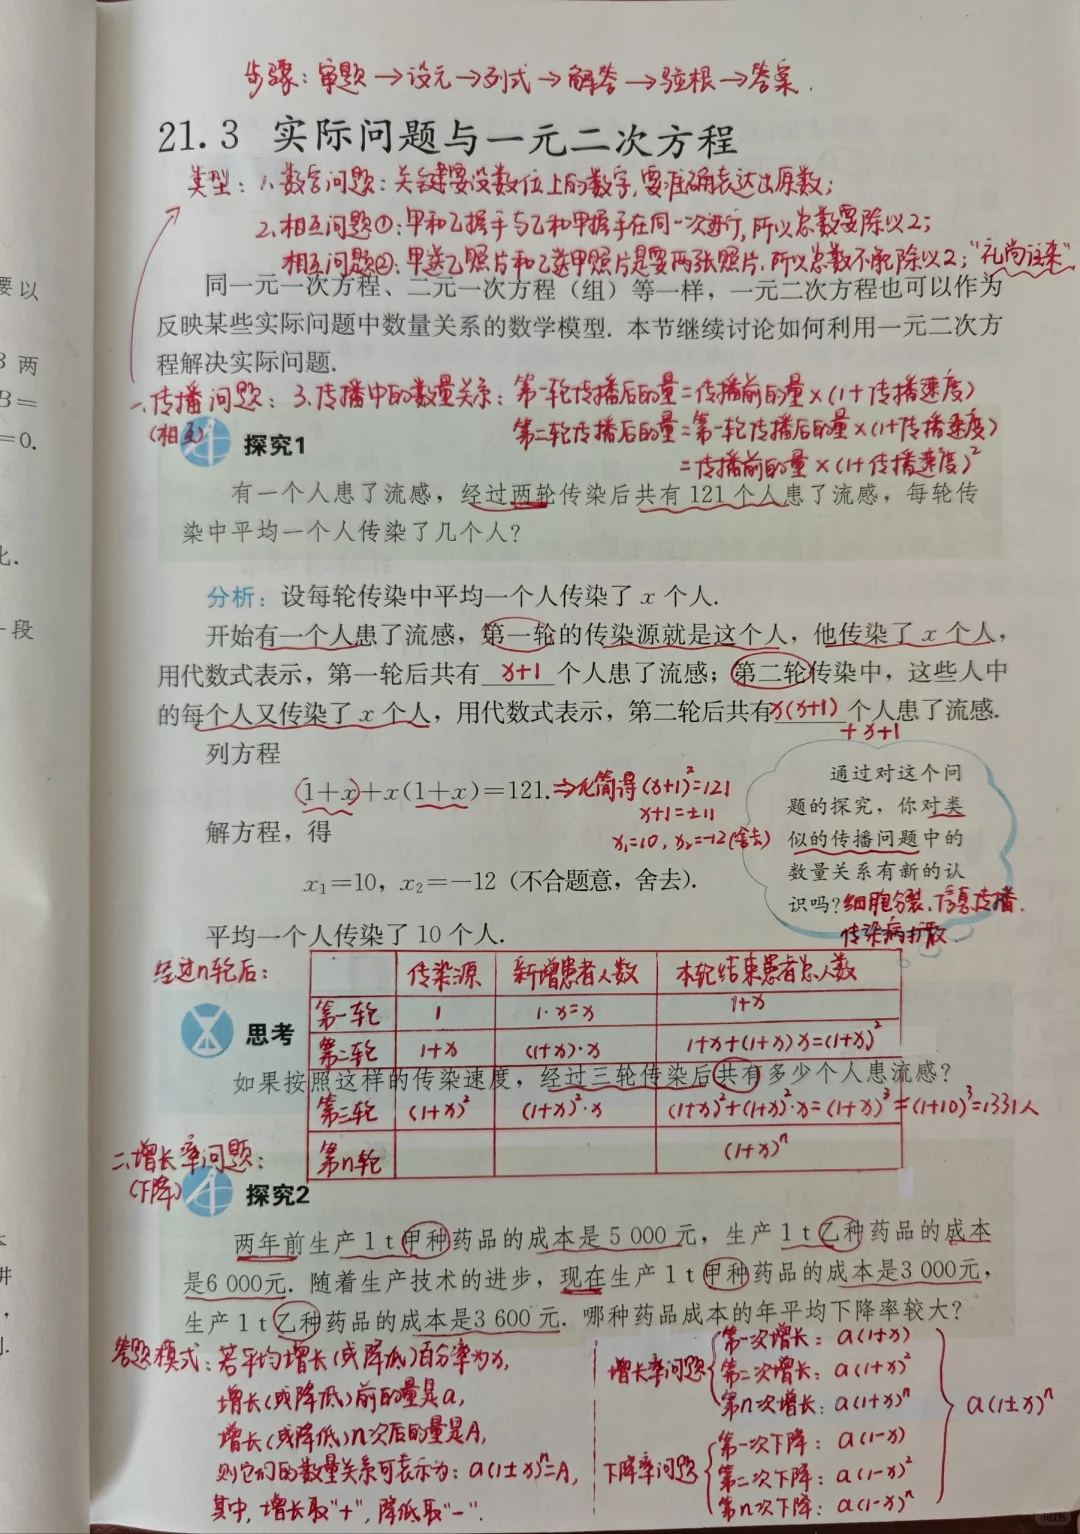 步骤：审题→设元→列式→解答→验根→答案.
21.3 实际问题与一元二次方程
类型：1.数字问题：关键要设数位上的数字,要准确表达出原数；
2.相互问题①：甲和乙握手与乙和甲握手在同一次进行,所以总数要除以2；
相互问题②：甲送乙照片和乙送甲照片是要两张照片.所以总数不能除以2；"礼尚往来"
同一元一次方程、二元一次方程（组）等一样，一元二次方程也可以作为
反映某些实际问题中数量关系的数学模型. 本节继续讨论如何利用一元二次方
程解决实际问题.
一、传播问题：3.传播中的数量关系：第一轮传播后的量=传播前的量×(1+传播速度)
(相互)
第二轮传播后的量=第一轮传播后的量×(1+传播速度)
=传播前的量×(1+传播速度)²
探究1
有一个人患了流感，经过两轮传染后共有 121 个人患了流感，每轮传
染中平均一个人传染了几个人？
分析：设每轮传染中平均一个人传染了 x 个人.
开始有一个人患了流感，第一轮的传染源就是这个人，他传染了 x 个人，
用代数式表示，第一轮后共有 x+1 个人患了流感；第二轮传染中，这些人中
的每个人又传染了 x 个人，用代数式表示，第二轮后共有x(x+1) 个人患了流感.
+x+1
列方程
(1+x)+x(1+x)=121.⇒化简得(x+1)²=121
x+1=±11
解方程，得
x₁=10, x₂=-12(舍去)
x₁=10，x₂=-12（不合题意，舍去）.
平均一个人传染了 10 个人.
通过对这个问
题的探究，你对类
似的传播问题中的
数量关系有新的认
识吗？细胞分裂、信息传播.
传染病扩散.
经过n轮后：
传染源 新增患者人数 本轮结束患者总人数
第一轮 1 1·x=x 1+x
第二轮 1+x (1+x)·x 1+x+(1+x)x=(1+x)²
思考
如果按照这样的传染速度，经过三轮传染后共有多少个人患流感？
第三轮 (1+x)² (1+x)²·x (1+x)²+(1+x)²·x=(1+x)³=(1+10)³=1331人
第n轮 (1+x)ⁿ
二、增长率问题：
(下降)
探究2
两年前生产 1 t 甲种药品的成本是 5 000 元，生产 1 t 乙种药品的成本
是6 000元. 随着生产技术的进步，现在生产 1 t 甲种药品的成本是3 000元，
生产 1 t 乙种药品的成本是3 600元. 哪种药品成本的年平均下降率较大？
答题模式：若平均增长(或降低)百分率为x,
增长(或降低)前的量是a,
增长(或降低)n次后的量是A,
则它们的数量关系可表示为：a(1±x)ⁿ=A,
其中,增长取"+",降低取"-".
增长率问题
第一次增长：a(1+x)
第二次增长：a(1+x)²
第n次增长：a(1+x)ⁿ
下降率问题
第一次下降：a(1-x)
第二次下降：a(1-x)²
第n次下降：a(1-x)ⁿ
a(1±x)ⁿ
要以
B 两
B=
=0.
化.
一段
讲